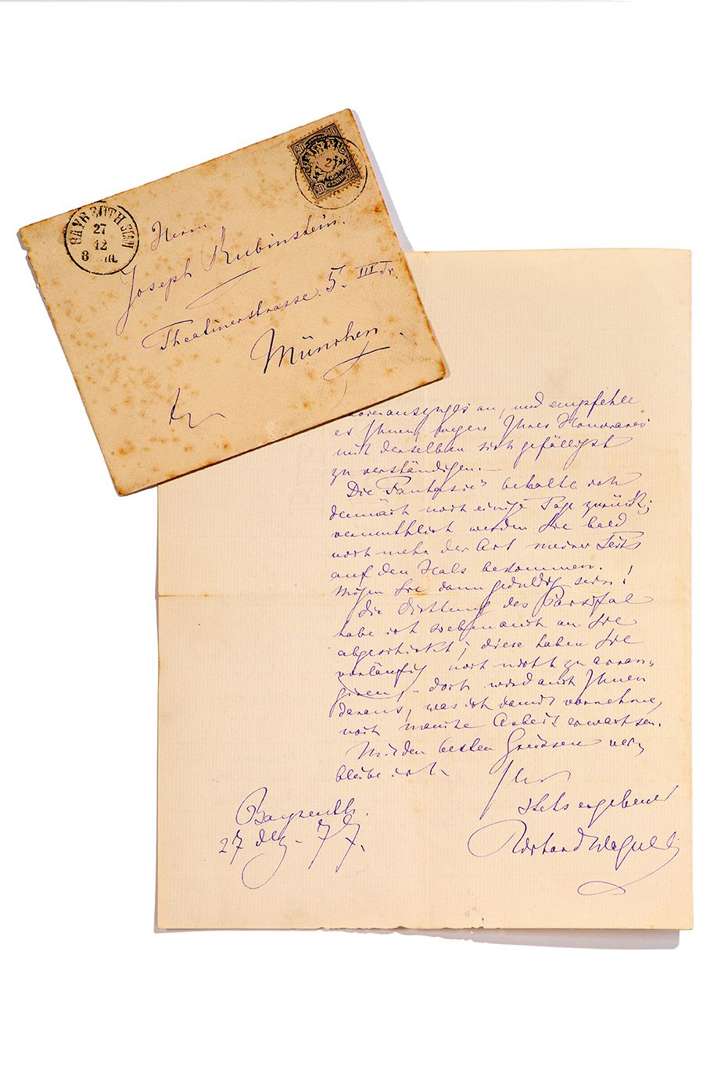 BAYREUTH
27
12
8
Herrn
Joseph Rubinstein.
Theatinerstrasse 5. III
München.
an, und empfehle
es Ihnen wegen Ihres Honorares
mit derselben sich gefälligst
zu verständigen.—
Die "Fantasie" behalte ich
demnach noch einige Tage zurück;
vermuthlich werden Sie bald
noch mehr der Art meiner Seits
auf den Hals bekommen.
Mögen Sie dann geduldig sein!
Die Dichtung des Parsifal
habe ich soeben auch an Sie
abgeschickt; diese haben Sie
vorläufig noch nicht zu arran-
giren, doch wird auch Ihnen
daraus, was ich damit vornehme,
noch manche Arbeit erwachsen.
Mit den besten Grüssen ver-
bleibe ich
Ihr
stets ergebener
Richard Wagner
Bayreuth.
27 Dez. 77.